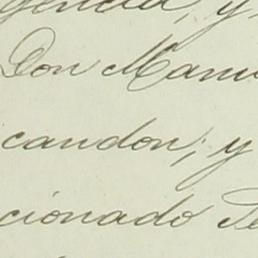 gencia, y
Don Manu
candon, y
cionado Se